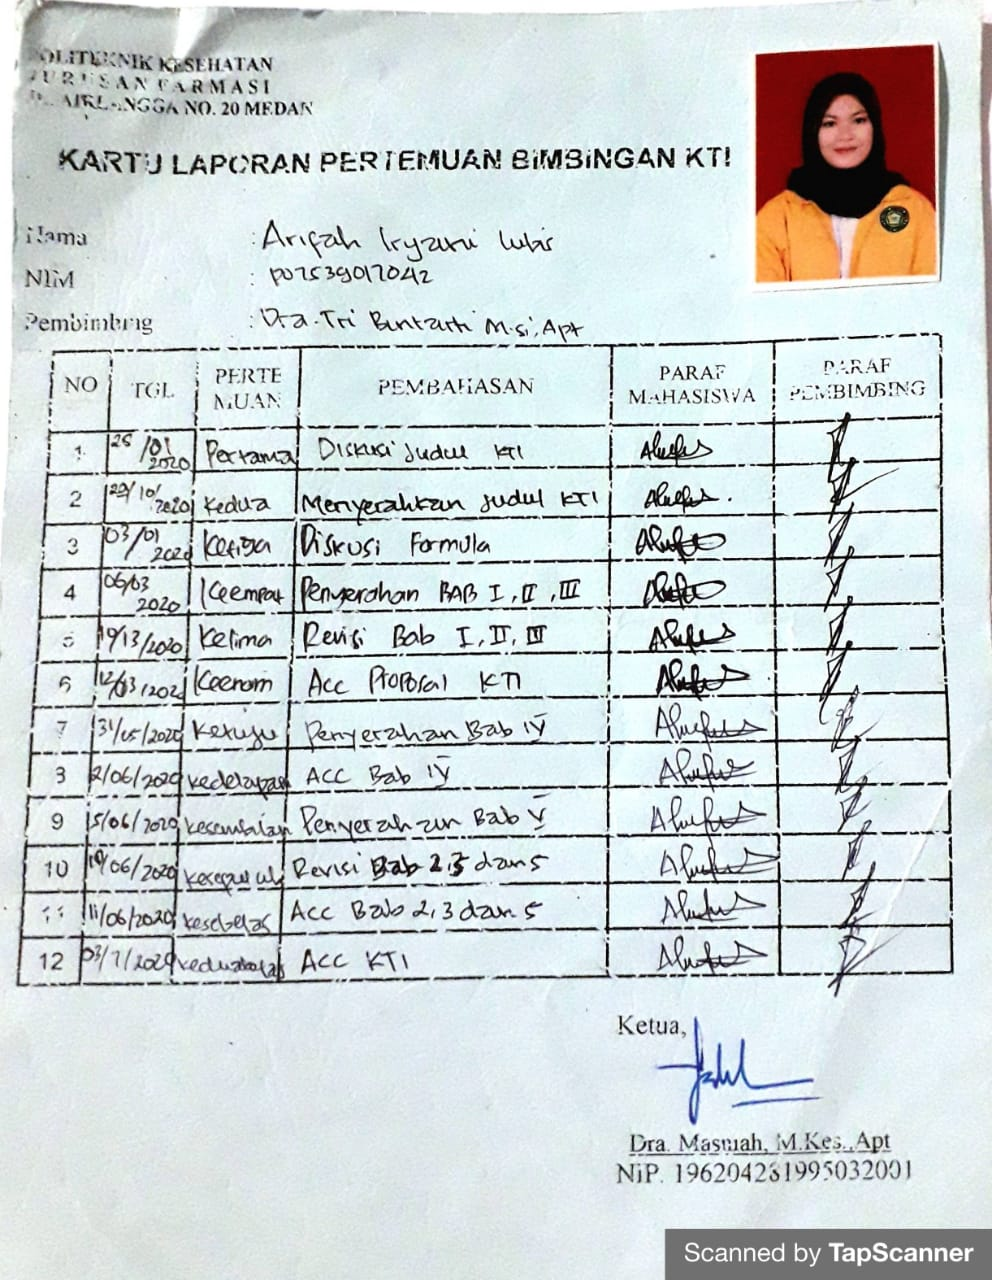 POLITEKNIK KESEHATAN
JURUSAN FARMASI
JL. AIRLANGGA NO. 20 MEDAN
KARTU LAPORAN PERTEMUAN BIMBINGAN KTI
Nama : Arifah Iryani Lubis
NIM : P07539017042
Pembimbing : Dra. Tri Bintarti M.si, Apt
NO TGL PERTEMUAN PEMBAHASAN PARAF MAHASISWA PARAF PEMBIMBING
1 /01 2020 Pertama Diskusi Judul KTI
2 29/10/2020 Kedua Menyerahkan Judul KTI
3 03/01 2020 Ketiga Diskusi Formula
4 06/03 2020 Keempat Penyerahan BAB I, II, III
5 Kelima Revisi Bab I, II, III
6 12/03/2020 Keenam Acc Proposal KTI
7 31/05/2020 Ketujuh Penyerahan Bab IV
8 2/06/2020 kedelapan ACC Bab IV
9 5/06/2020 kesembilan Penyerahan Bab V
10 10/06/2020 kesepuluh Revisi Bab 2,3 dan 5
11 11/06/2020 kesebelas Acc Bab 2,3 dan 5
12 03/7/2020 keduabelas Acc KTI
Ketua,
Dra. Masniah, M.Kes., Apt
NIP. 196204281995032001
Scanned by TapScanner